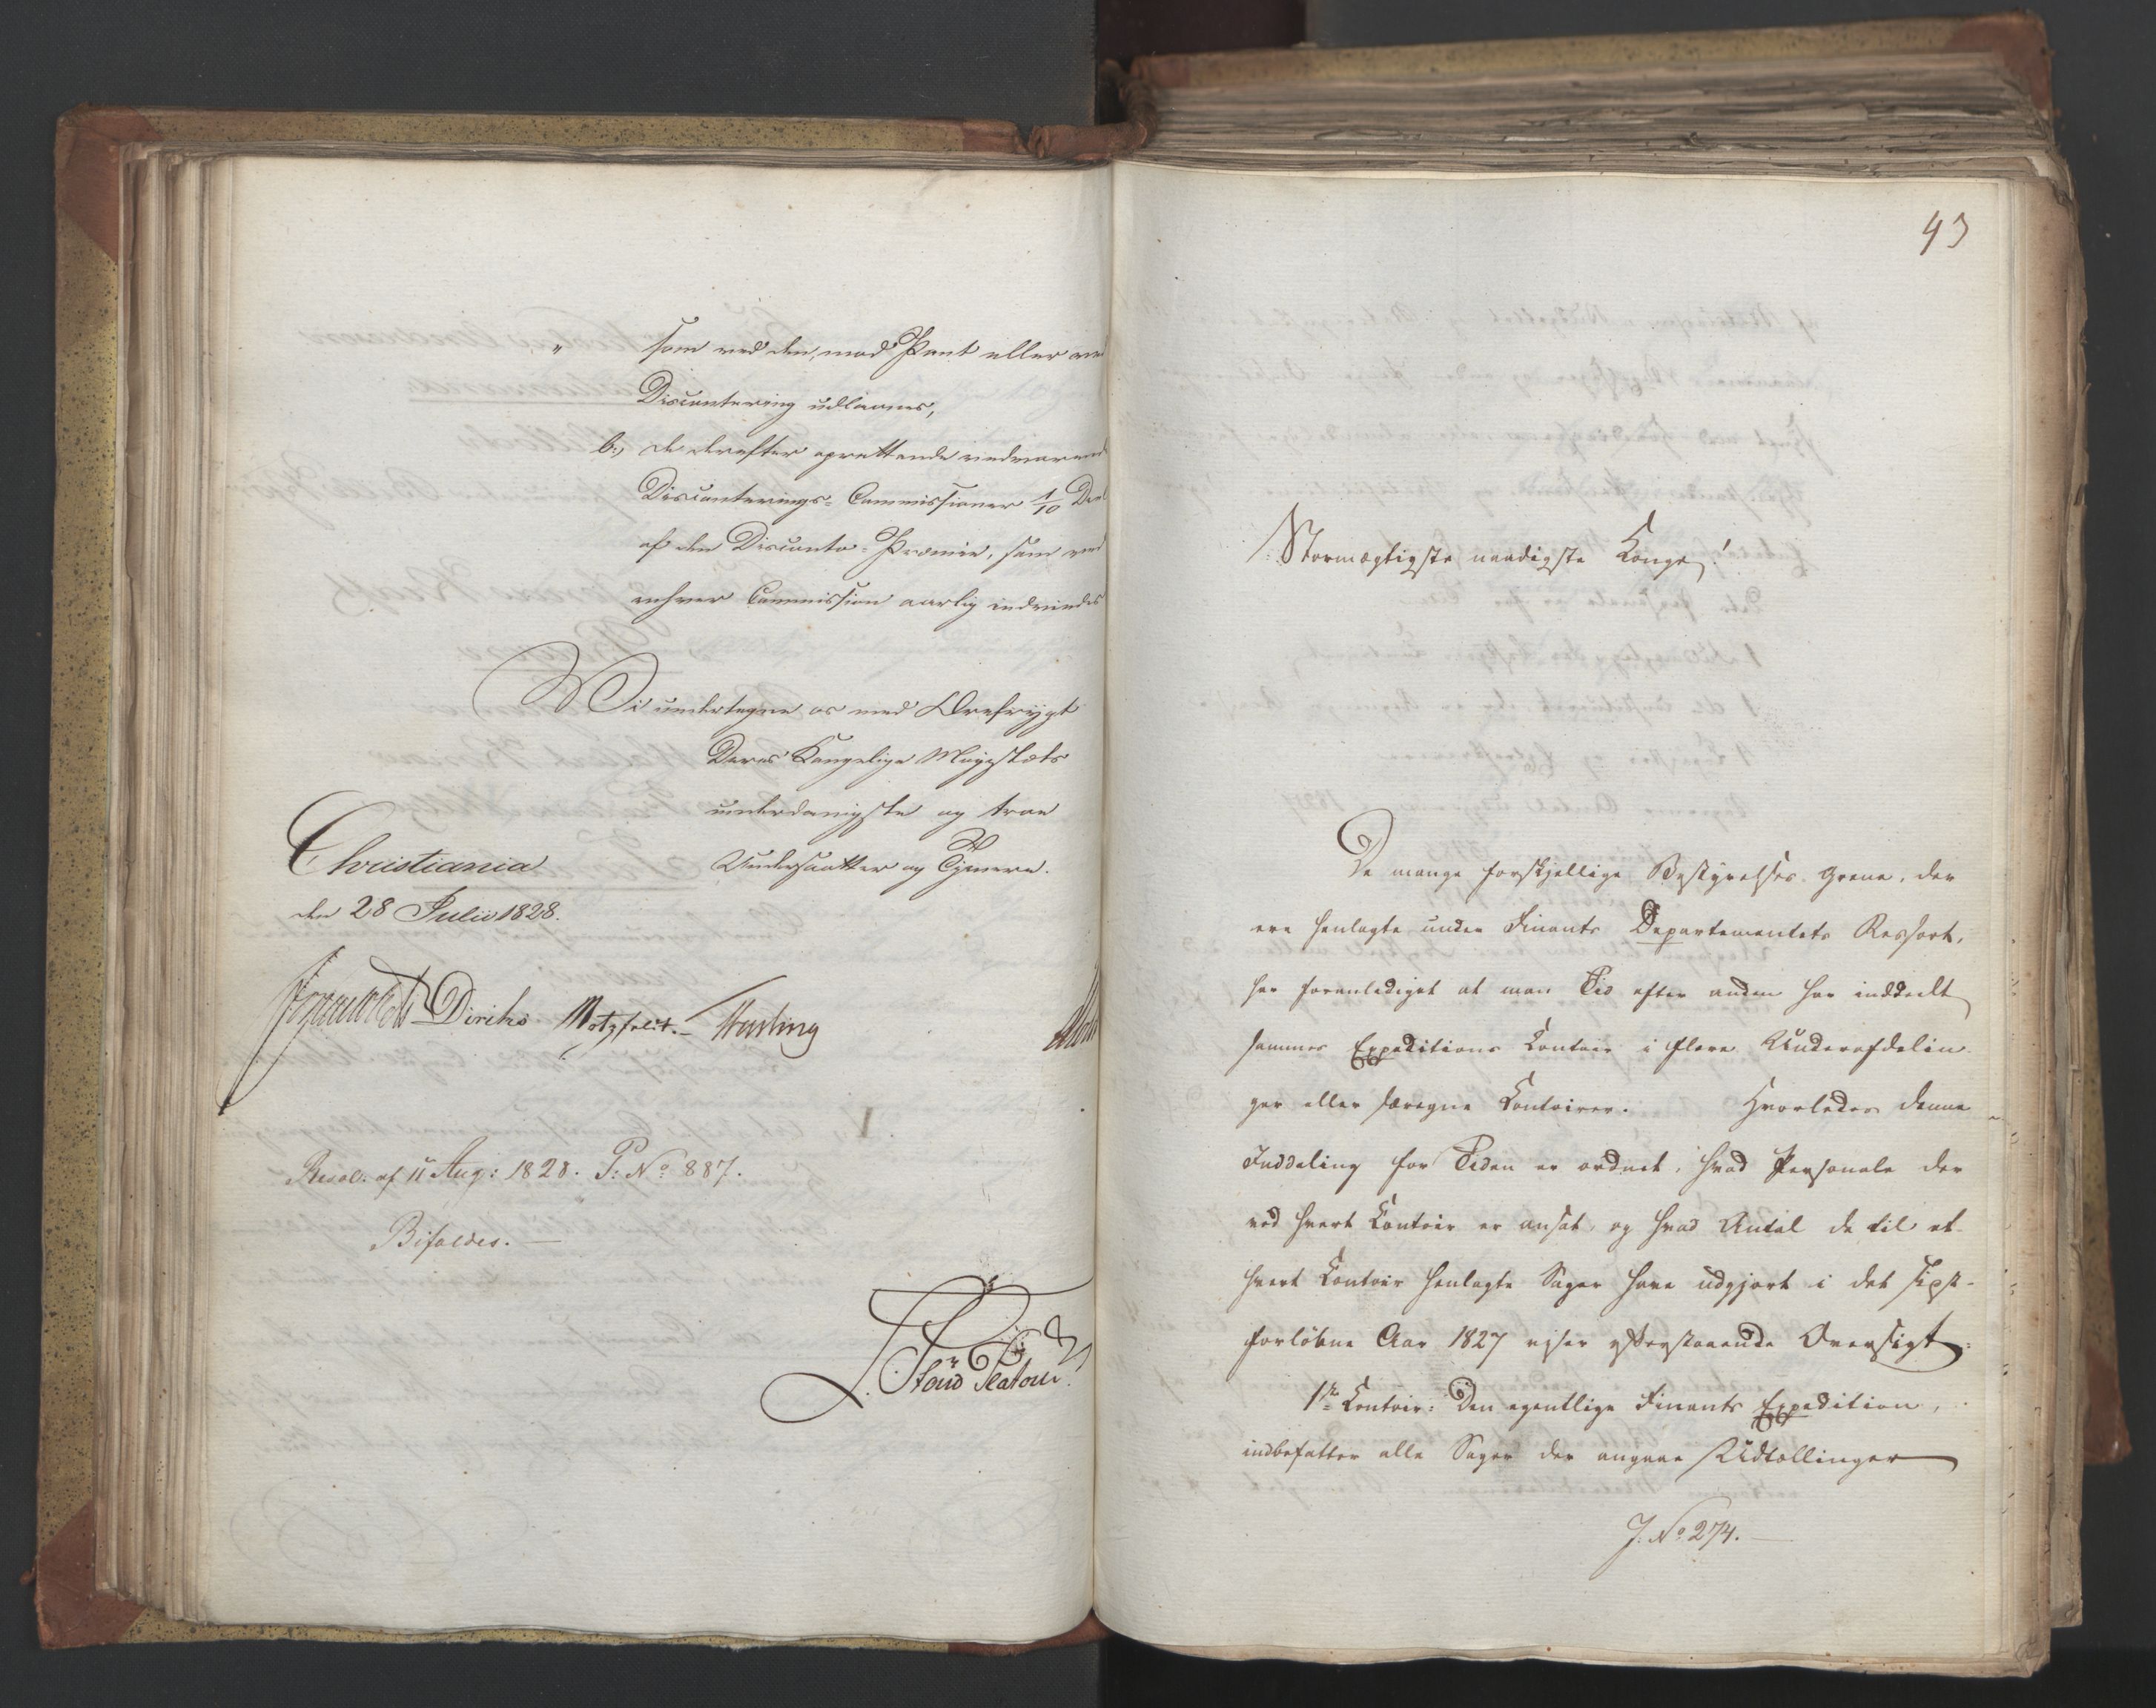 " som ved den, mod Pant eller ved
Discontering udlaanes,
b:, de derefter oprettende vedvarende
Disconterings-Commissioner 1/10 Deel
af den Disconto-Præmie, som ved
enhver Commission aarlig indvindes
Vi undertegne os med Ærefrygt
Deres Kongelige Majestæts
underdanigste og troe
Undersaatter og Tjenere.
Christiania
den 28 Julii 1828.
Diriks. Motzfeldt. Hasting
Resol. af 11 Aug: 1828. P: No 887.
Bifaldes.
43
Stormægtigste naadigste Konge!
De mange forskjellige Bestyrelses-Grene, der
ere henlagte under Finants Departementets Ressort,
har foranlediget at man Tid efter anden har inddeelt
sammes Expeditions Contoir i flere Underafdelin-
ger eller særegne Contoirer. Hvorledes denne
Inddeling for Tiden er ordnet, hvad Personale der
ved hvert Contoir er ansat, og hvad Antal de til et-
hvert Contoir henlagte Sager have udgjort i det sidst-
forløbne Aar 1827 viser efterstaaende Oversigt:
1ste Contoir: Den egentlige Finants Expedition,
indbefatter alle Sager der angaae Udtællinger
J. No 274.